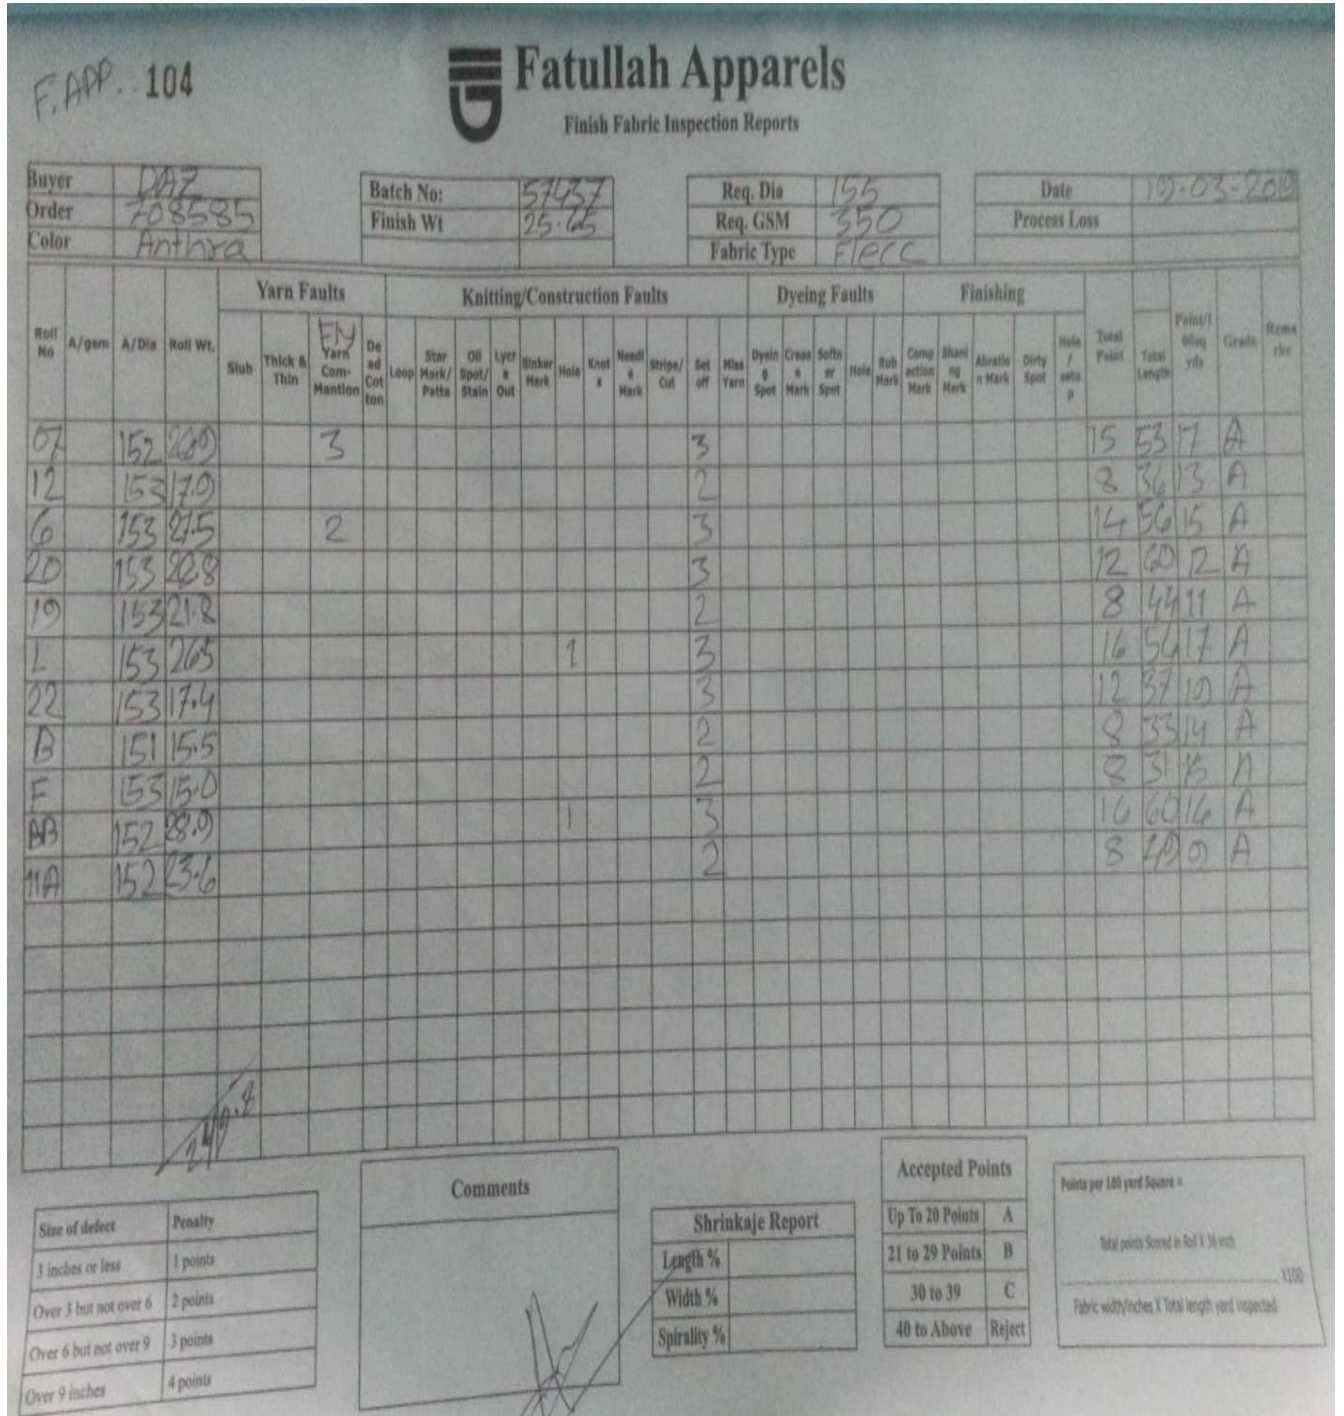 F. APP.. 104
Fatullah Apparels
Finish Fabric Inspection Reports
Buyer DAZ
Order 708585
Color Anthra
Batch No: 57437
Finish Wt
Req. Dia 155
Req. GSM 350
Fabric Type Flecc
Date
Process Loss
Yarn Faults Knitting/Construction Faults Dyeing Faults Finishing
Roll No A/gsm A/Dia Roll Wt. Slub Thick & Thin Yarn Com-Mantion Dead Cotton Loop Star Mark/Patta Oil Spot/Stain Lycra Out Sinker Mark Hole Knots Needle Mark Strips/Cut Set off Miss Yarn Dyeing Spot Creass Mark Softner Spot Hole Rub Mark Compaction Mark Shaning Mark Abration Mark Dirty Spot Hole/setup Total Point Total Length Grade Remarks
07 152 3 3 15 53 17 A
12 153 17.9 2 8 36 13 A
6 153 27.5 2 3 14 56 15 A
20 153 3 12 60 12 A
19 153 21.8 2 8 44 11 A
L 153 26.5 1 3 16 54 17 A
22 153 17.4 3 12 37 A
B 151 15.5 2 8 33 14 A
F 153 15.0 2 8 31 15 A
BB 152 28.9 1 3 16 60 16 A
11A 152 23.6 2 8 9 A
Size of defect Penalty
3 inches or less 1 points
Over 3 but not over 6 2 points
Over 6 but not over 9 3 points
Over 9 inches 4 points
Comments
Shrinkaje Report
Length %
Width %
Spirality %
Accepted Points
Up To 20 Points A
21 to 29 Points B
30 to 39 C
40 to Above Reject
Points per 100 yard Square =
Total points Scored in Roll X 36 inch
X100
Fabric width/inches X Total length yard inspected